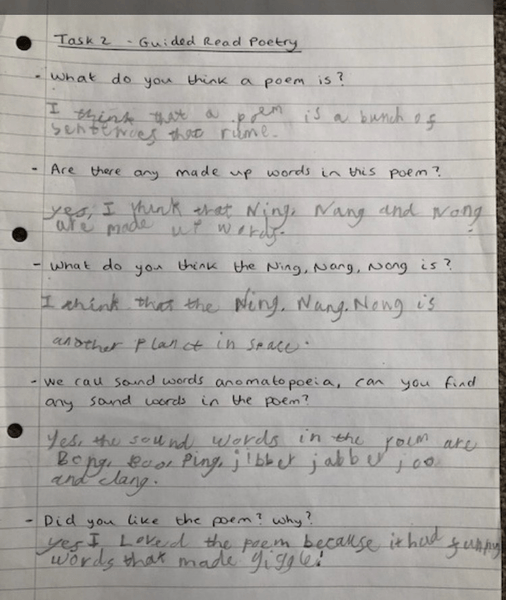 Task 2 - Guided Read Poetry
- What do you think a poem is?
I think that a poem is a bunch of
sentences that rime.
- Are there any made up words in this poem?
yes, I think that Ning, Nang and Nong
are made up words.
- What do you think the Ning, Nang, Nong is?
I think that the Ning. Nang. Nong is
another planet in space.
- We call sound words anomatopoeia, can you find
any sound words in the poem?
Yes, the sound words in the poem are
Bong, Boo, Ping, jibber jabber joo
and clang.
- Did you like the poem? why?
yes I Loved the poem because it had funny
words that made giggle!